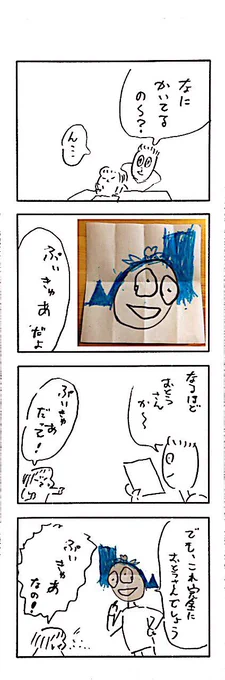 なに
かいてる
の〜?
ん…
ぷいきゅあ
だよ
なるほど
おとう
さん
か〜
ぷいきゅ
あ
だって!
でも、これ完全に
おとうさんでしょう
ぷい
きゅあ
なの!